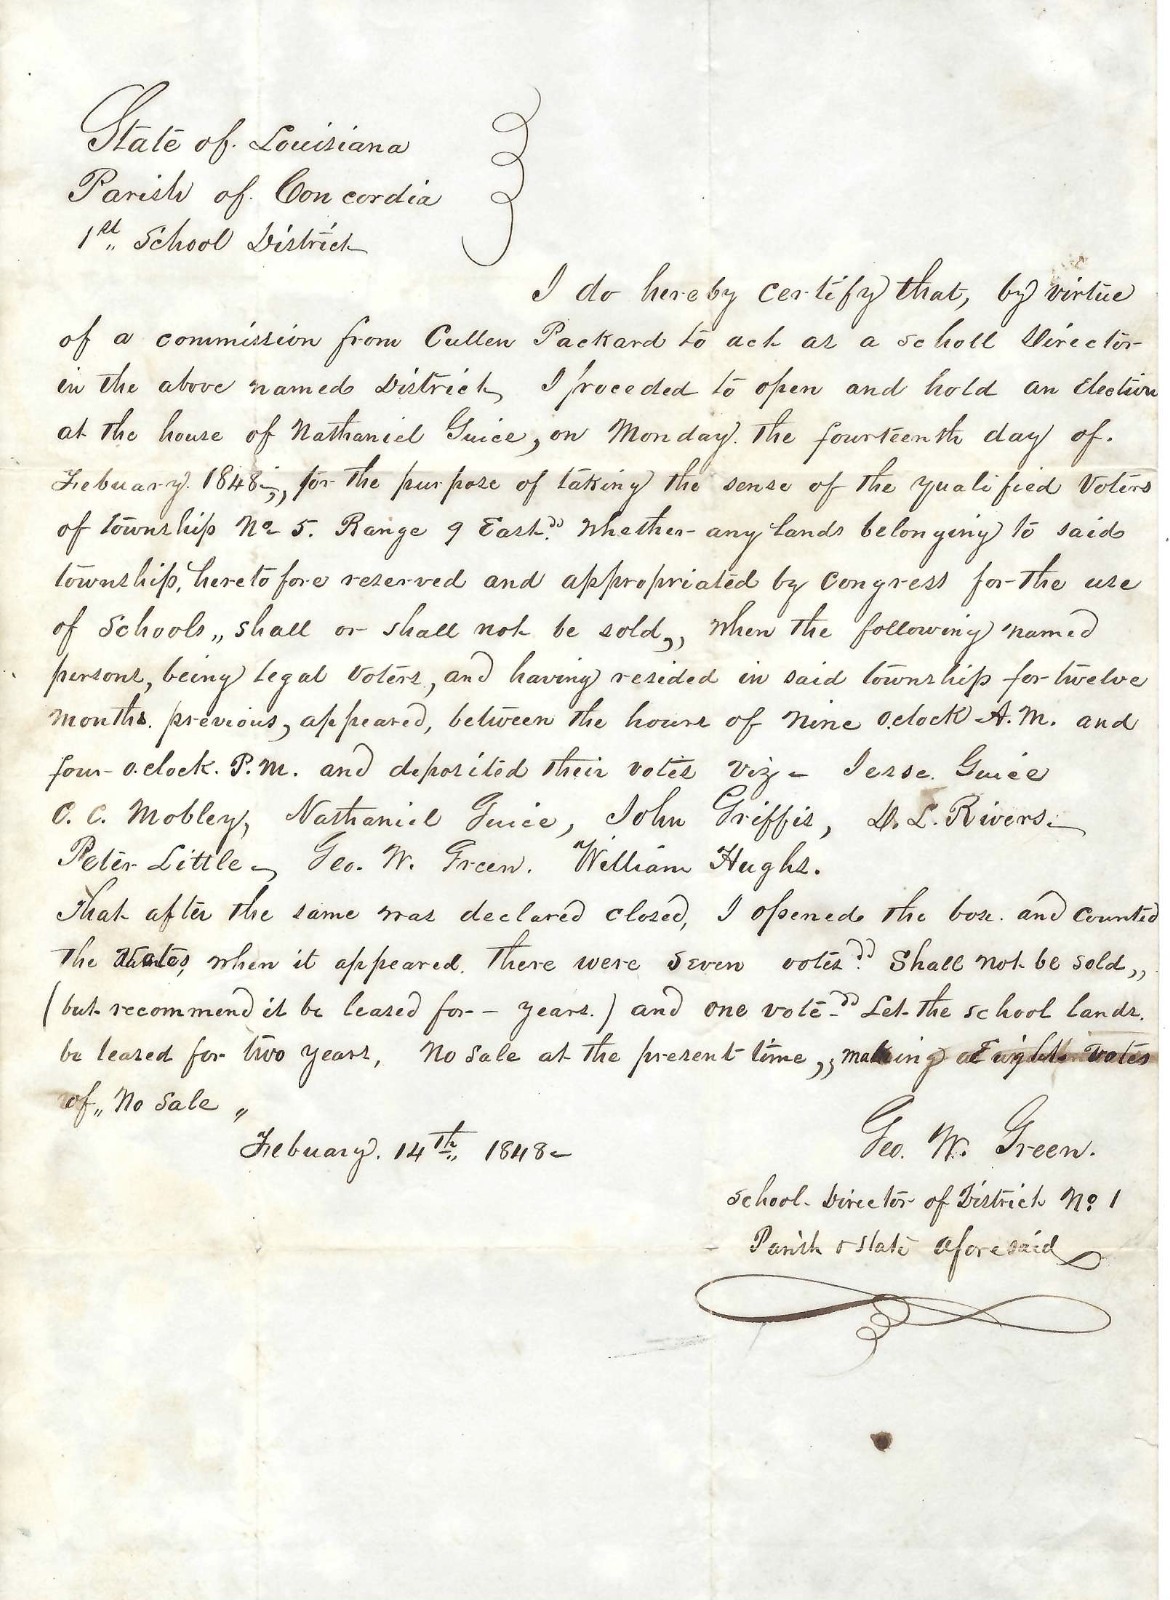 State of Louisiana
Parish of Concordia
1st School District
I do hereby certify that, by virtue
of a commission from Cullen Packard to act as a scholl Director
in the above named District, I proceded to open and hold an Election
at the house of Nathaniel Guice, on Monday. the fourteenth day of.
Febuary. 1848-,, for the purpose of taking the sense of the qualified Voters
of township No 5. Range 9 East," Whether any lands belonging to said
township, heretofore reserved and appropriated by Congress for the use
of Schools,, shall or shall not be sold,, When the following named
persons, being legal voters, and having resided in said township for twelve
months. previous, appeared, between the hours of nine o.clock A.M. and
four o.clock. P.M. and deposited their votes viz- Jesse. Guice
O. C. Mobley, Nathaniel Guice, John Griffis, D. L. Rivers-
Peter Little-, Geo. W. Green. William Hughs.
That after the same was declared closed, I opened the box. and counted
the votes, when it appeared. there were seven votes." Shall not be sold,,
(but recommend it be leased for - years.) and one vote-" Let the school lands.
be leased for two years, No sale at the present time,, making Eight votes
of,, No Sale ,,
Febuary. 14th 1848-
Geo. W. Green.
School Director of District No 1
Parish & State aforesaid